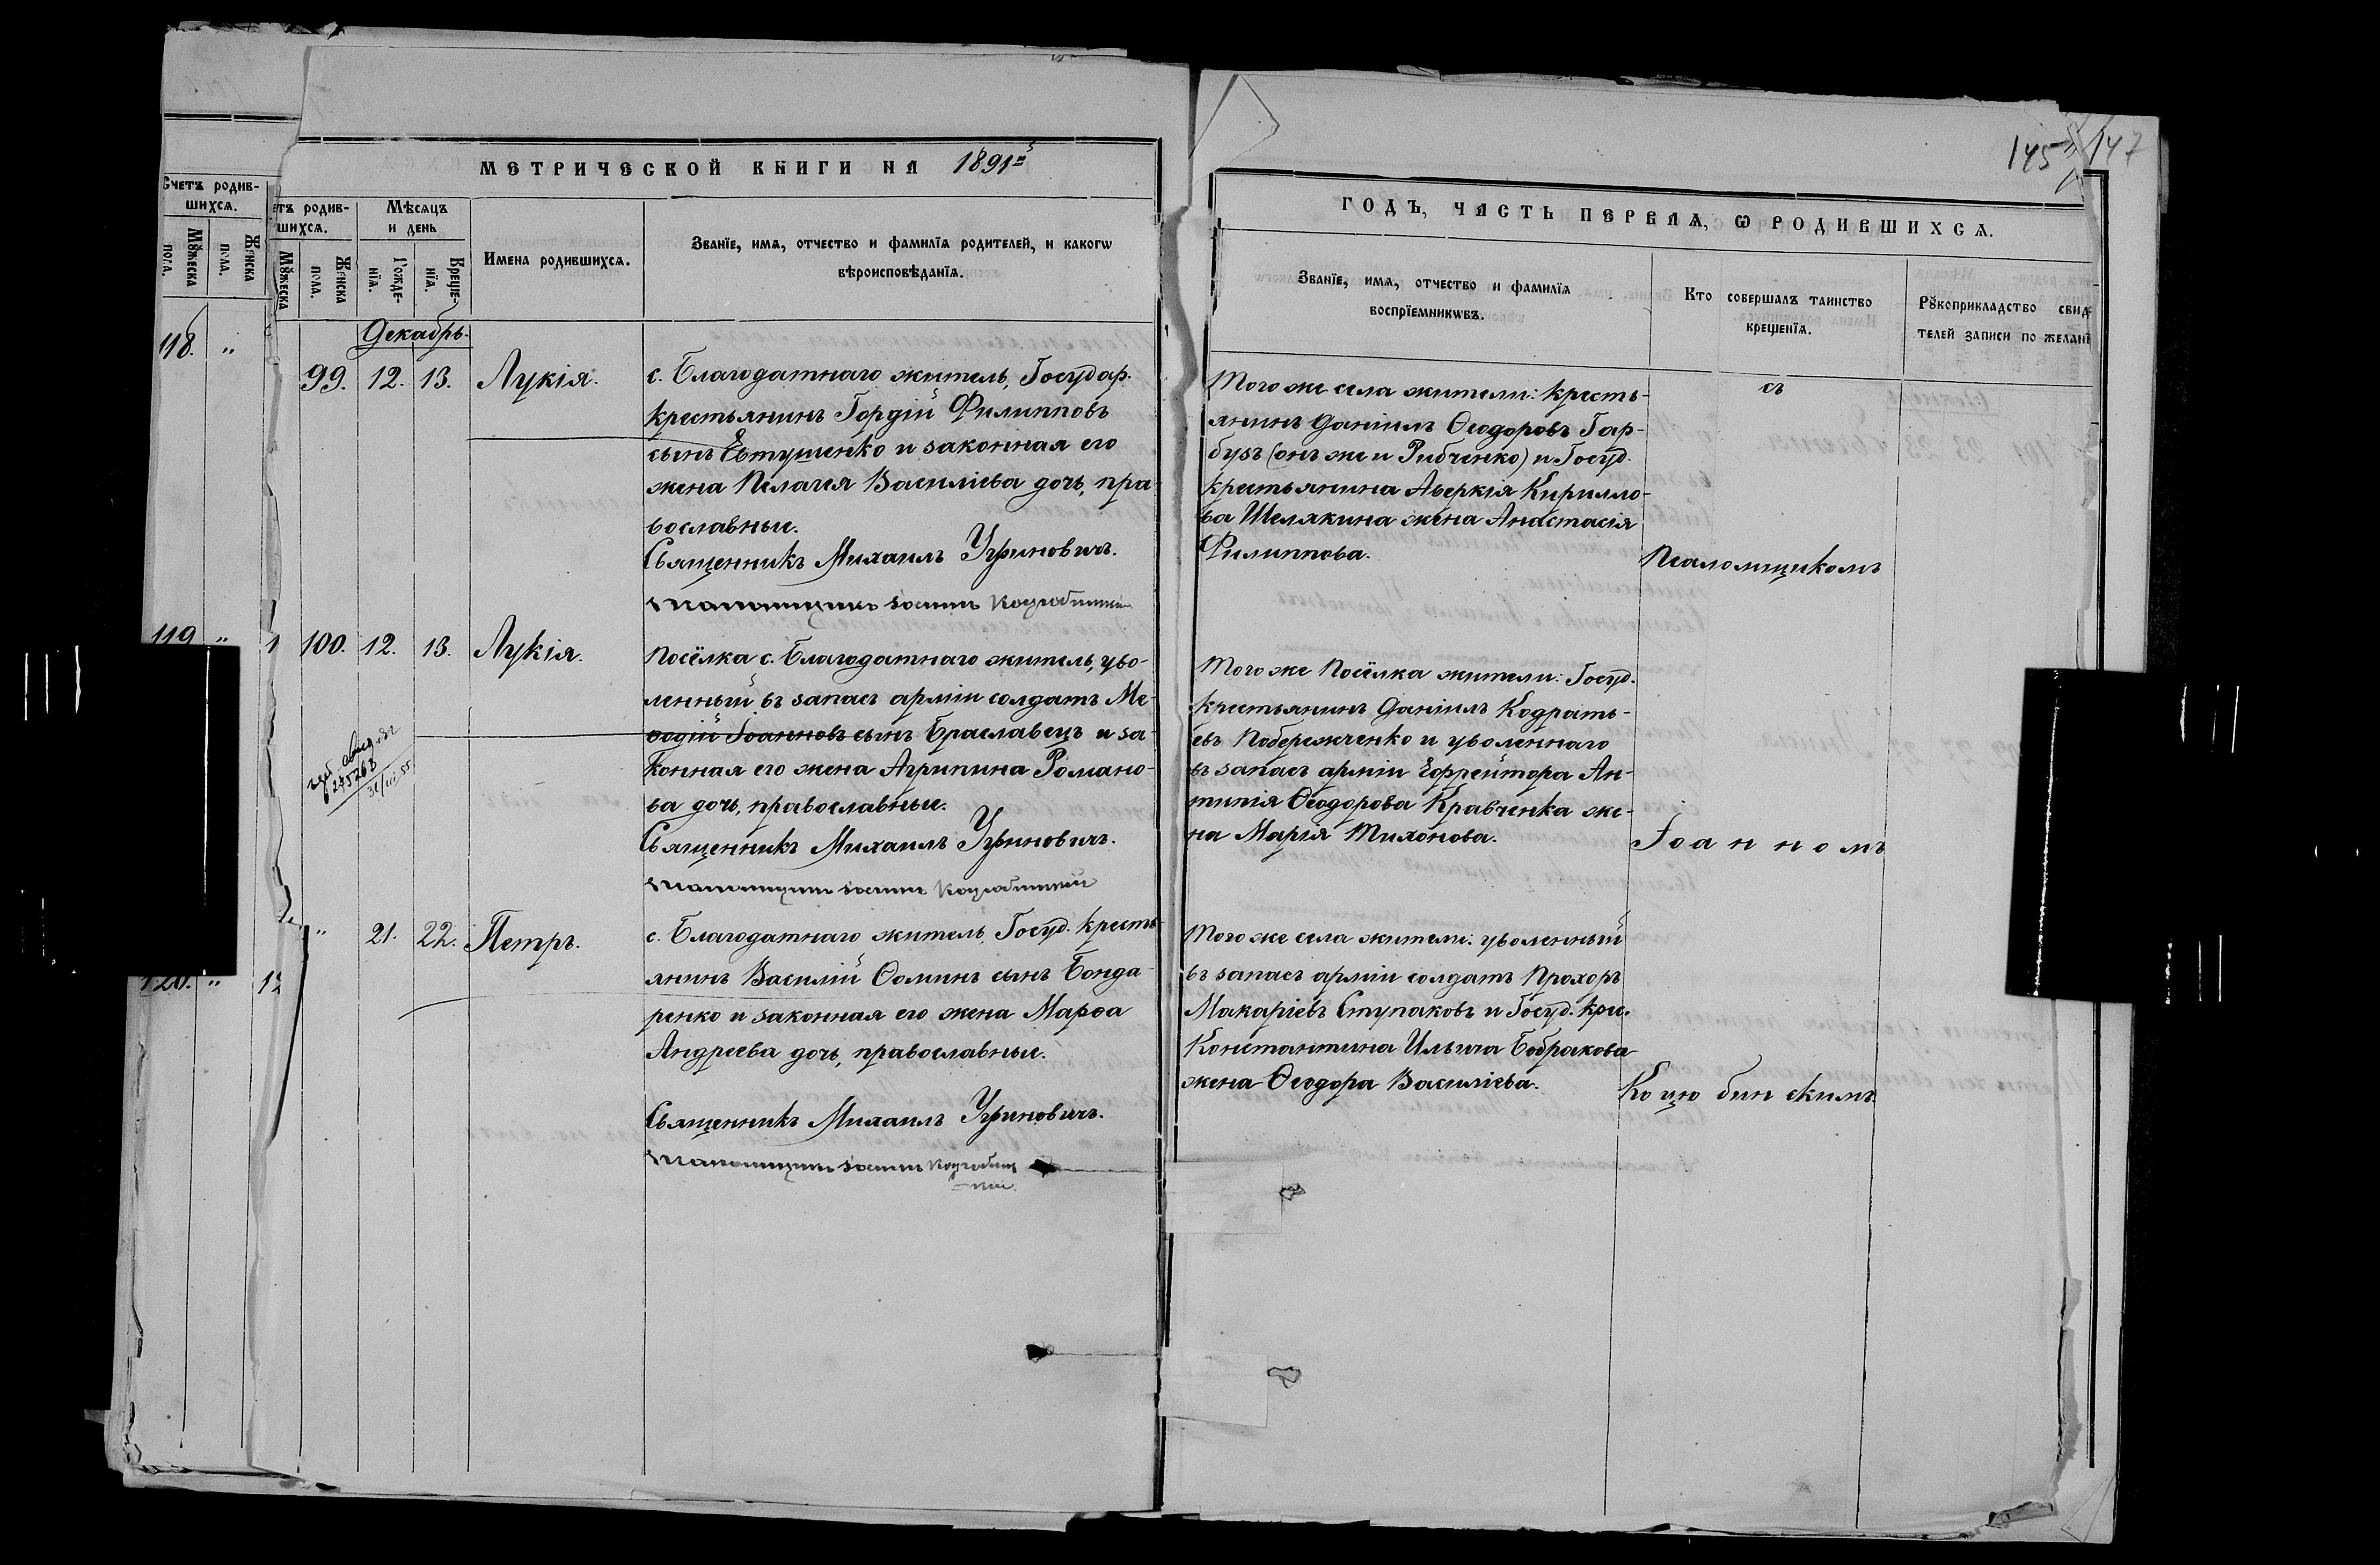 145 147
МЕТРИЧЕСКОЙ КНИГИ НА 1891й
ГОДЪ, ЧАСТЬ ПЕРВАЯ, Ѡ РОДИВШИХСѦ.
Счетъ родив-
шихсѧ.
Мꙋжеска
пола.
Женска
пола.
етъ родив-
шихсѧ.
Мꙋжеска
Женска
пола.
Мѣсѧцъ
и день
Рожде-
нїѧ.
Креще-
нїѧ.
Имена родившихсѧ.
Званїе, имѧ, отчество и фамилїѧ родителей, и какогѡ
вѣроисповѣданїѧ.
Званїе, имѧ, отчество и фамилїѧ
воспрїемникѡвъ.
Кто совершалъ таинство
крещенїѧ.
Рꙋкоприкладство свид
телей записи по желанї
118. "
Декабрь.
99. 12. 13. Лукія.
с. Благодатнаго житель, Государ.
крестьянинъ Гордій Филипповъ
сынъ Евтушенко и законная его
жена Пелагея Василіева дочь, пра-
вославные.
Священникъ Михаилъ Угриновичъ.
Того же села жители: кресть-
янинъ Даніилъ Ѳеодоровъ Гар-
бузъ (онъ же и Рибченко) и Госуд.
крестьянина Аверкія Кирилло-
ва Шелякина жена Анастасія
Филиппова.
съ
Псаломщикомъ
119 " 1
100. 12. 13. Лукія.
Посёлка с. Благодатнаго житель, уво-
ленный въ запасъ арміи солдатъ Ме-
ѳодій Іоанновъ сынъ Браславецъ и за-
конная его жена Агрипина Романо-
ва дочь, православные.
Священникъ Михаилъ Угриновичъ.
Того же Посёлка жители: Госуд.
крестьянинъ Даніилъ Кодрать-
евъ Побережченко и уволеннаго
въ запасъ арміи Ефрейтора Ан-
типія Ѳеодорова Кравченка же-
на Марія Тихонова.
Іоанномъ
120. " 12
" 21. 22. Петръ.
с. Благодатнаго житель, Госуд. кресть-
янинъ Василій Ѳоминъ сынъ Бонда-
ренко и законная его жена Марѳа
Андреева дочь, православные.
Священникъ Михаилъ Угриновичъ.
Того же села жители: уволенный
въ запасъ арміи солдатъ Прохоръ
Макаріевъ Ступаковъ и Госуд. крес.
Константина Ильича Бобракова
жена Ѳеодора Василіева.
Коцюбинскимъ.